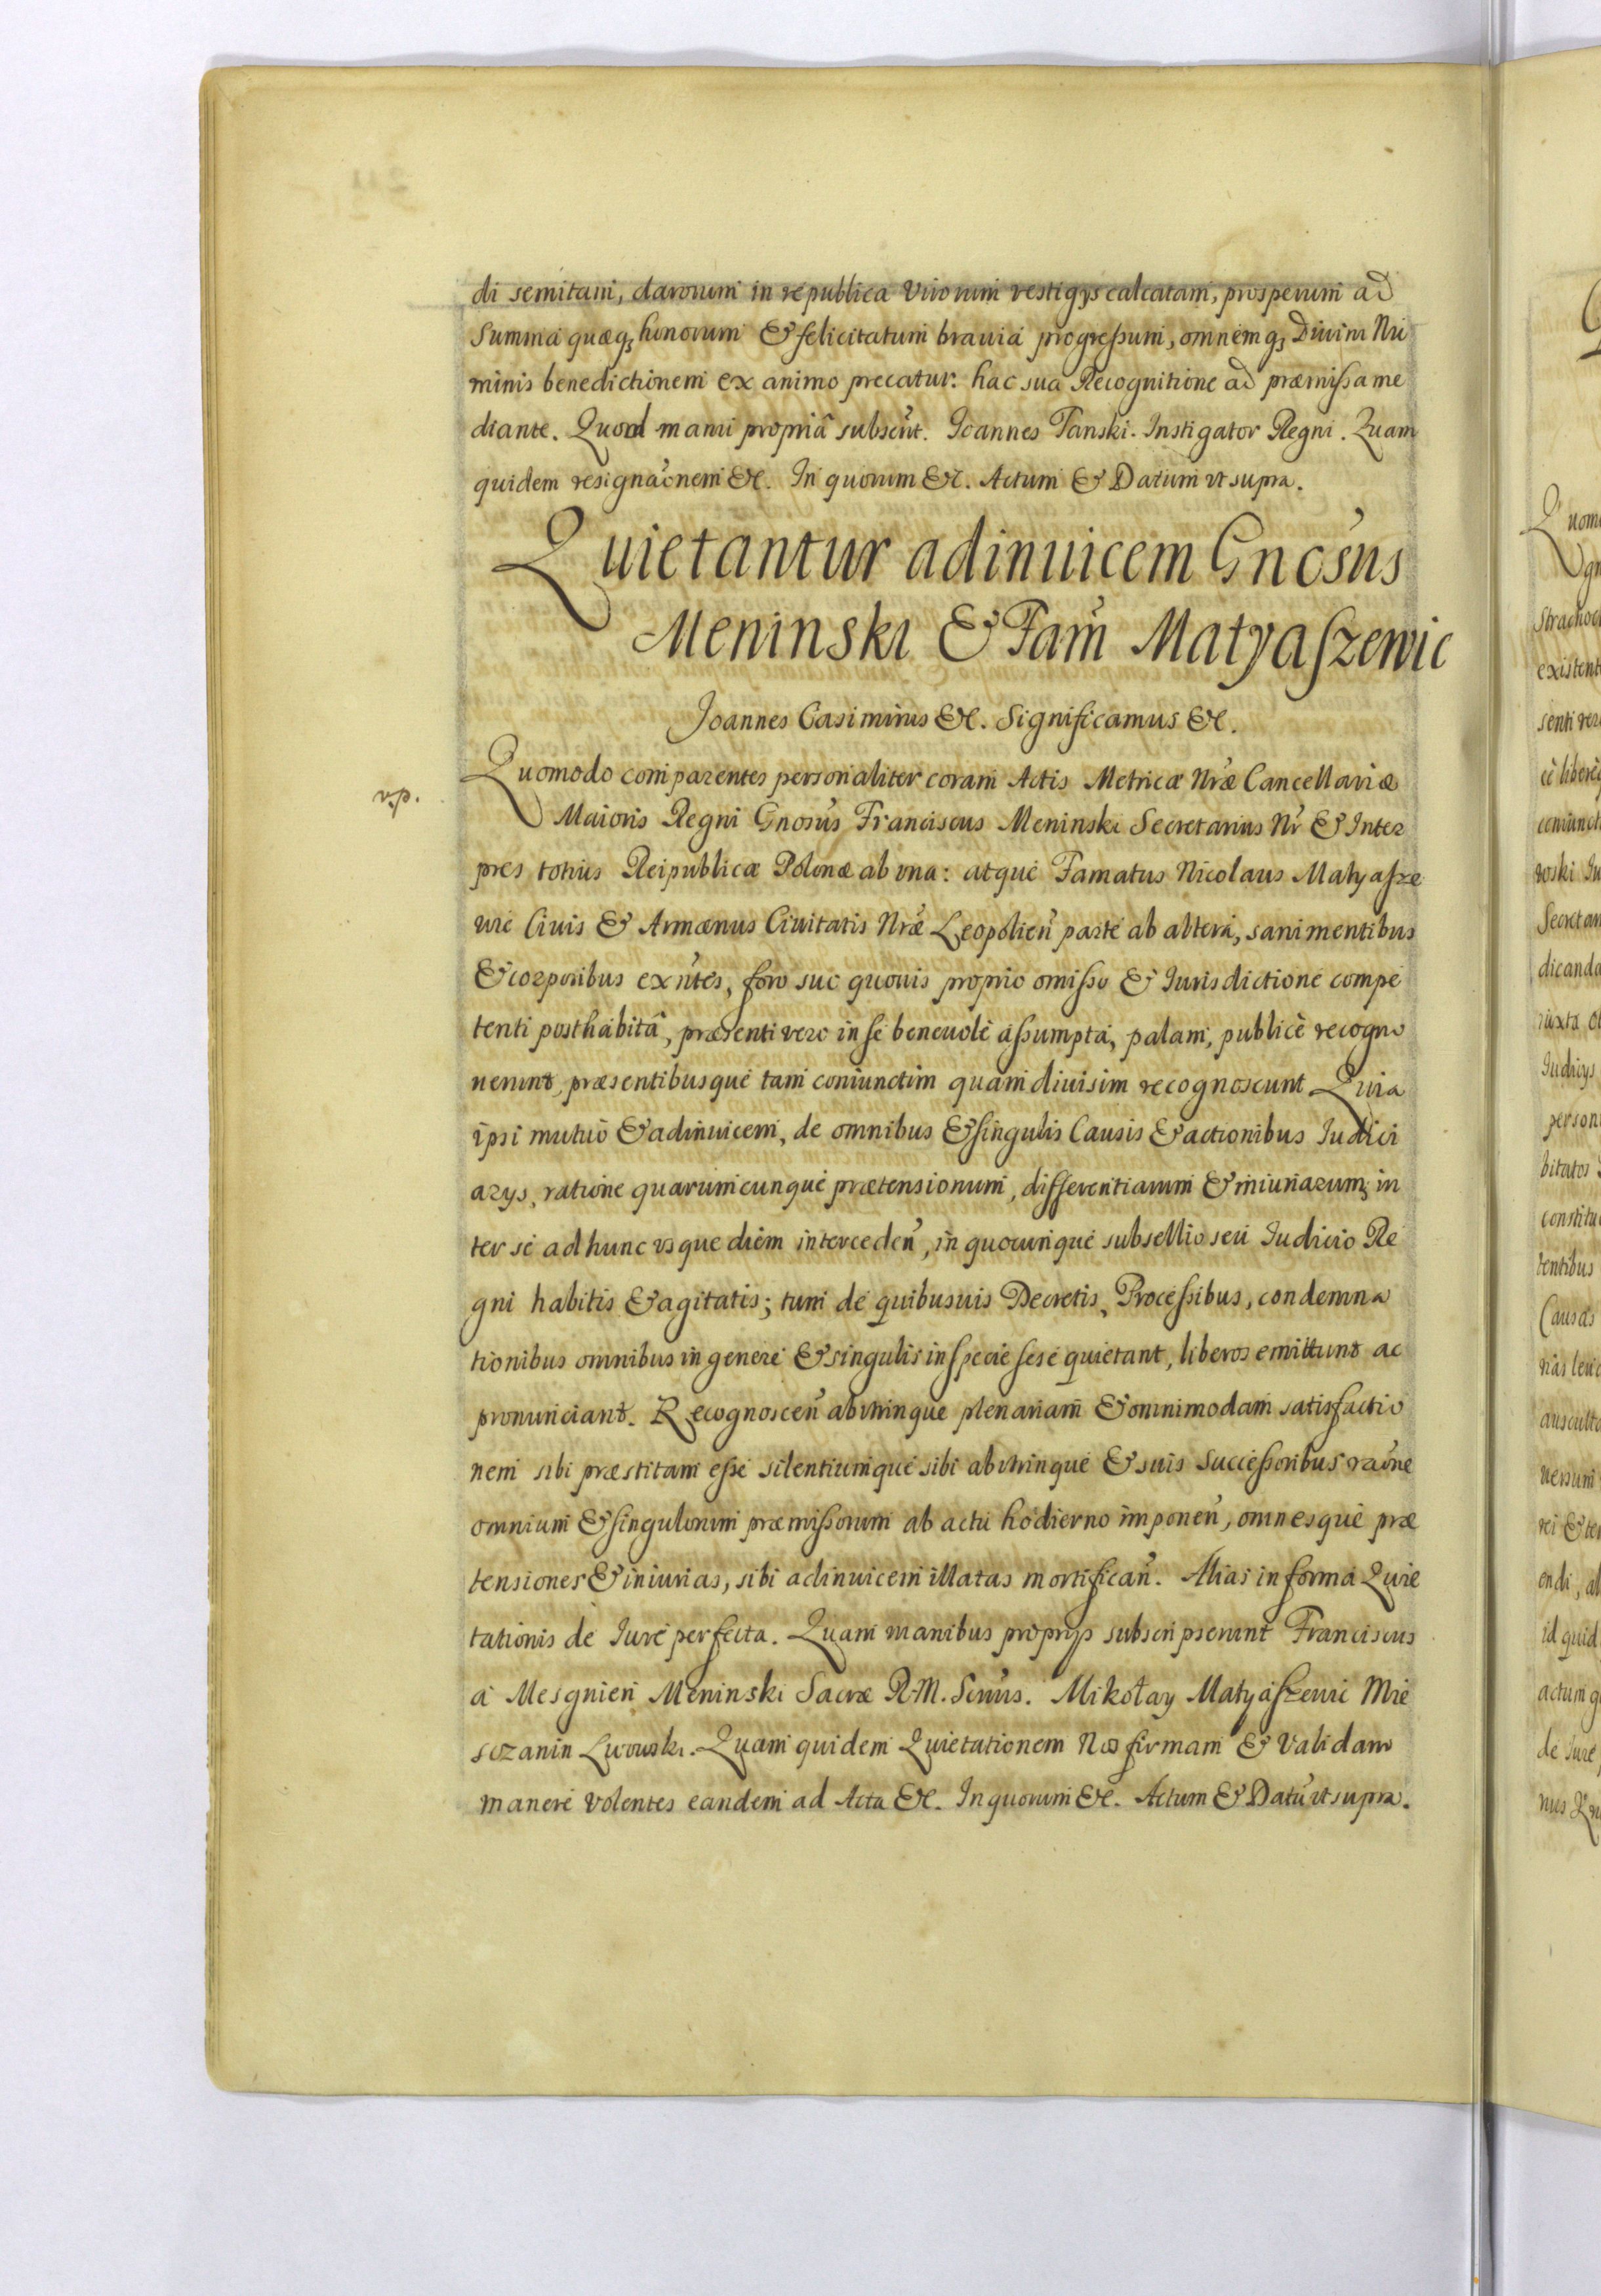 di semitam, clarorum in republica Virorum vestigijs calcatam, prosperum ad
Summa quæq; honorum & felicitatum brauia progressum, omnemq; Diuini Nu
minis benedictionem ex animo precatur. hac sua Recognitione ad præmissa me
diante. Quod manu propriâ subscrīt. Joannes Tanski. Instigator Regni. Quam
quidem resignaōnem &c. In quorum &c. Actum & Datum vt supra.
Quietantur adinuicem Gnosus
Meninski & Fam̃ Matyaszewic
Joannes Casimirus &c. Significamus &c.
Quomodo comparentes personaliter coram Actis Metricæ Nræ Cancellariæ
vp.
Maioris Regni Gnosus Franciscus Meninski Secretarius Nr & Inter
pres totius Reipublicæ Polonæ ab vna: atque Famatus Nicolaus Matyasze
wic Ciuis & Armænus Ciuitatis Nræ Leopolien̄ parte ab altera, sani mentibus
& corporibus exn̄tes, foro suo quouis proprio omisso & Iurisdictione compe
tenti posthabitâ, præsenti vero in se beneuolè assumpta, palam, publicè recogno
uerunt, præsentibusque tam coniunctim quam diuisim recognoscunt Quia
ipsi mutuò & adinuicem, de omnibus & singulis Causis & actionibus Iudici
arys, ratione quarumcunque prætensionum, differentiarum & iniuriarum, in
ter se ad hunc vsque diem interceden̄, in quocunque subsellio seu Iudicio Re
gni habitis & agitatis; tum de quibusuis Decretis, Processibus, condemna
tionibus omnibus in genere & singulis in specie sese quietant, liberos emittunt ac
pronunciant. Recognoscen̄ abvtrinque plenariam & omnimodam satisfactio
nem sibi præstitam esse silentiumque sibi abvtrinque & suis Successoribus raōne
omnium & singulorum præmissorum ab actu hodierno imponen̄, omnesque præ
tensiones & iniurias, sibi adinuicem illatas mortifican̄. Alias in forma Quie
tationis de Iure perfecta. Quam manibus proprijs subscripserunt Franciscus
à Mesgnien Meninski Sacræ R. M. Scrius. Mikołay Matyaszewic Mie
sczanin Lwowski. Quam quidem Quietationem Nos firmam & Validam
manere volentes eandem ad Acta &c. In quorum &c. Actum & Datū vt supra.